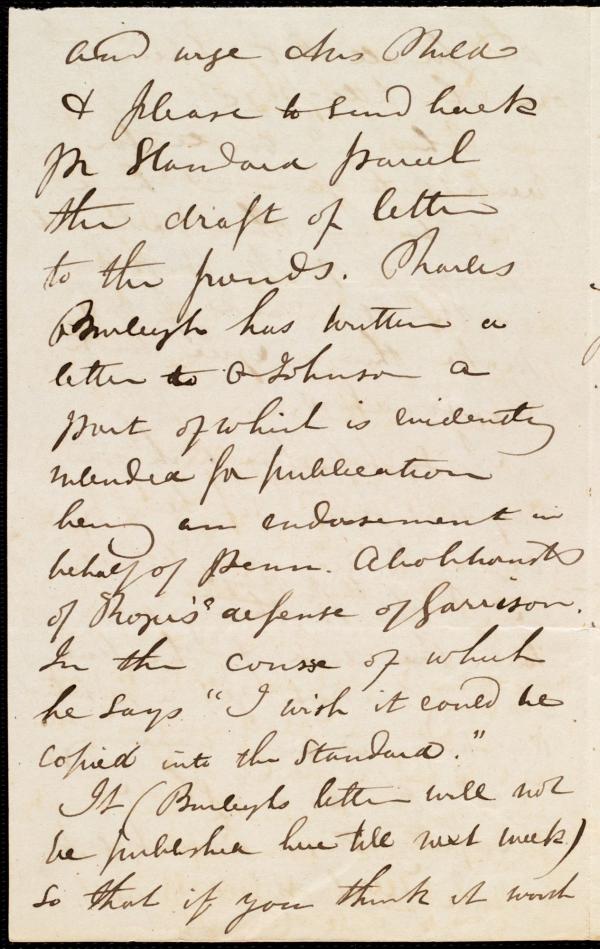 and urge this Phila
& please to send back
pr Standard parcel
the draft of letter
to the friends. Charles
Burleigh has written a
letter to O Johnson a
part of which is evidently
intended for publication
being an endorsement in
behalf of Penn. Abolitionists
of defense of Garrison.
In the course of which
he says "I wish it could be
copied into the Standard."
It (Burleighs letter will not
be published here till next week)
so that if you think it worth